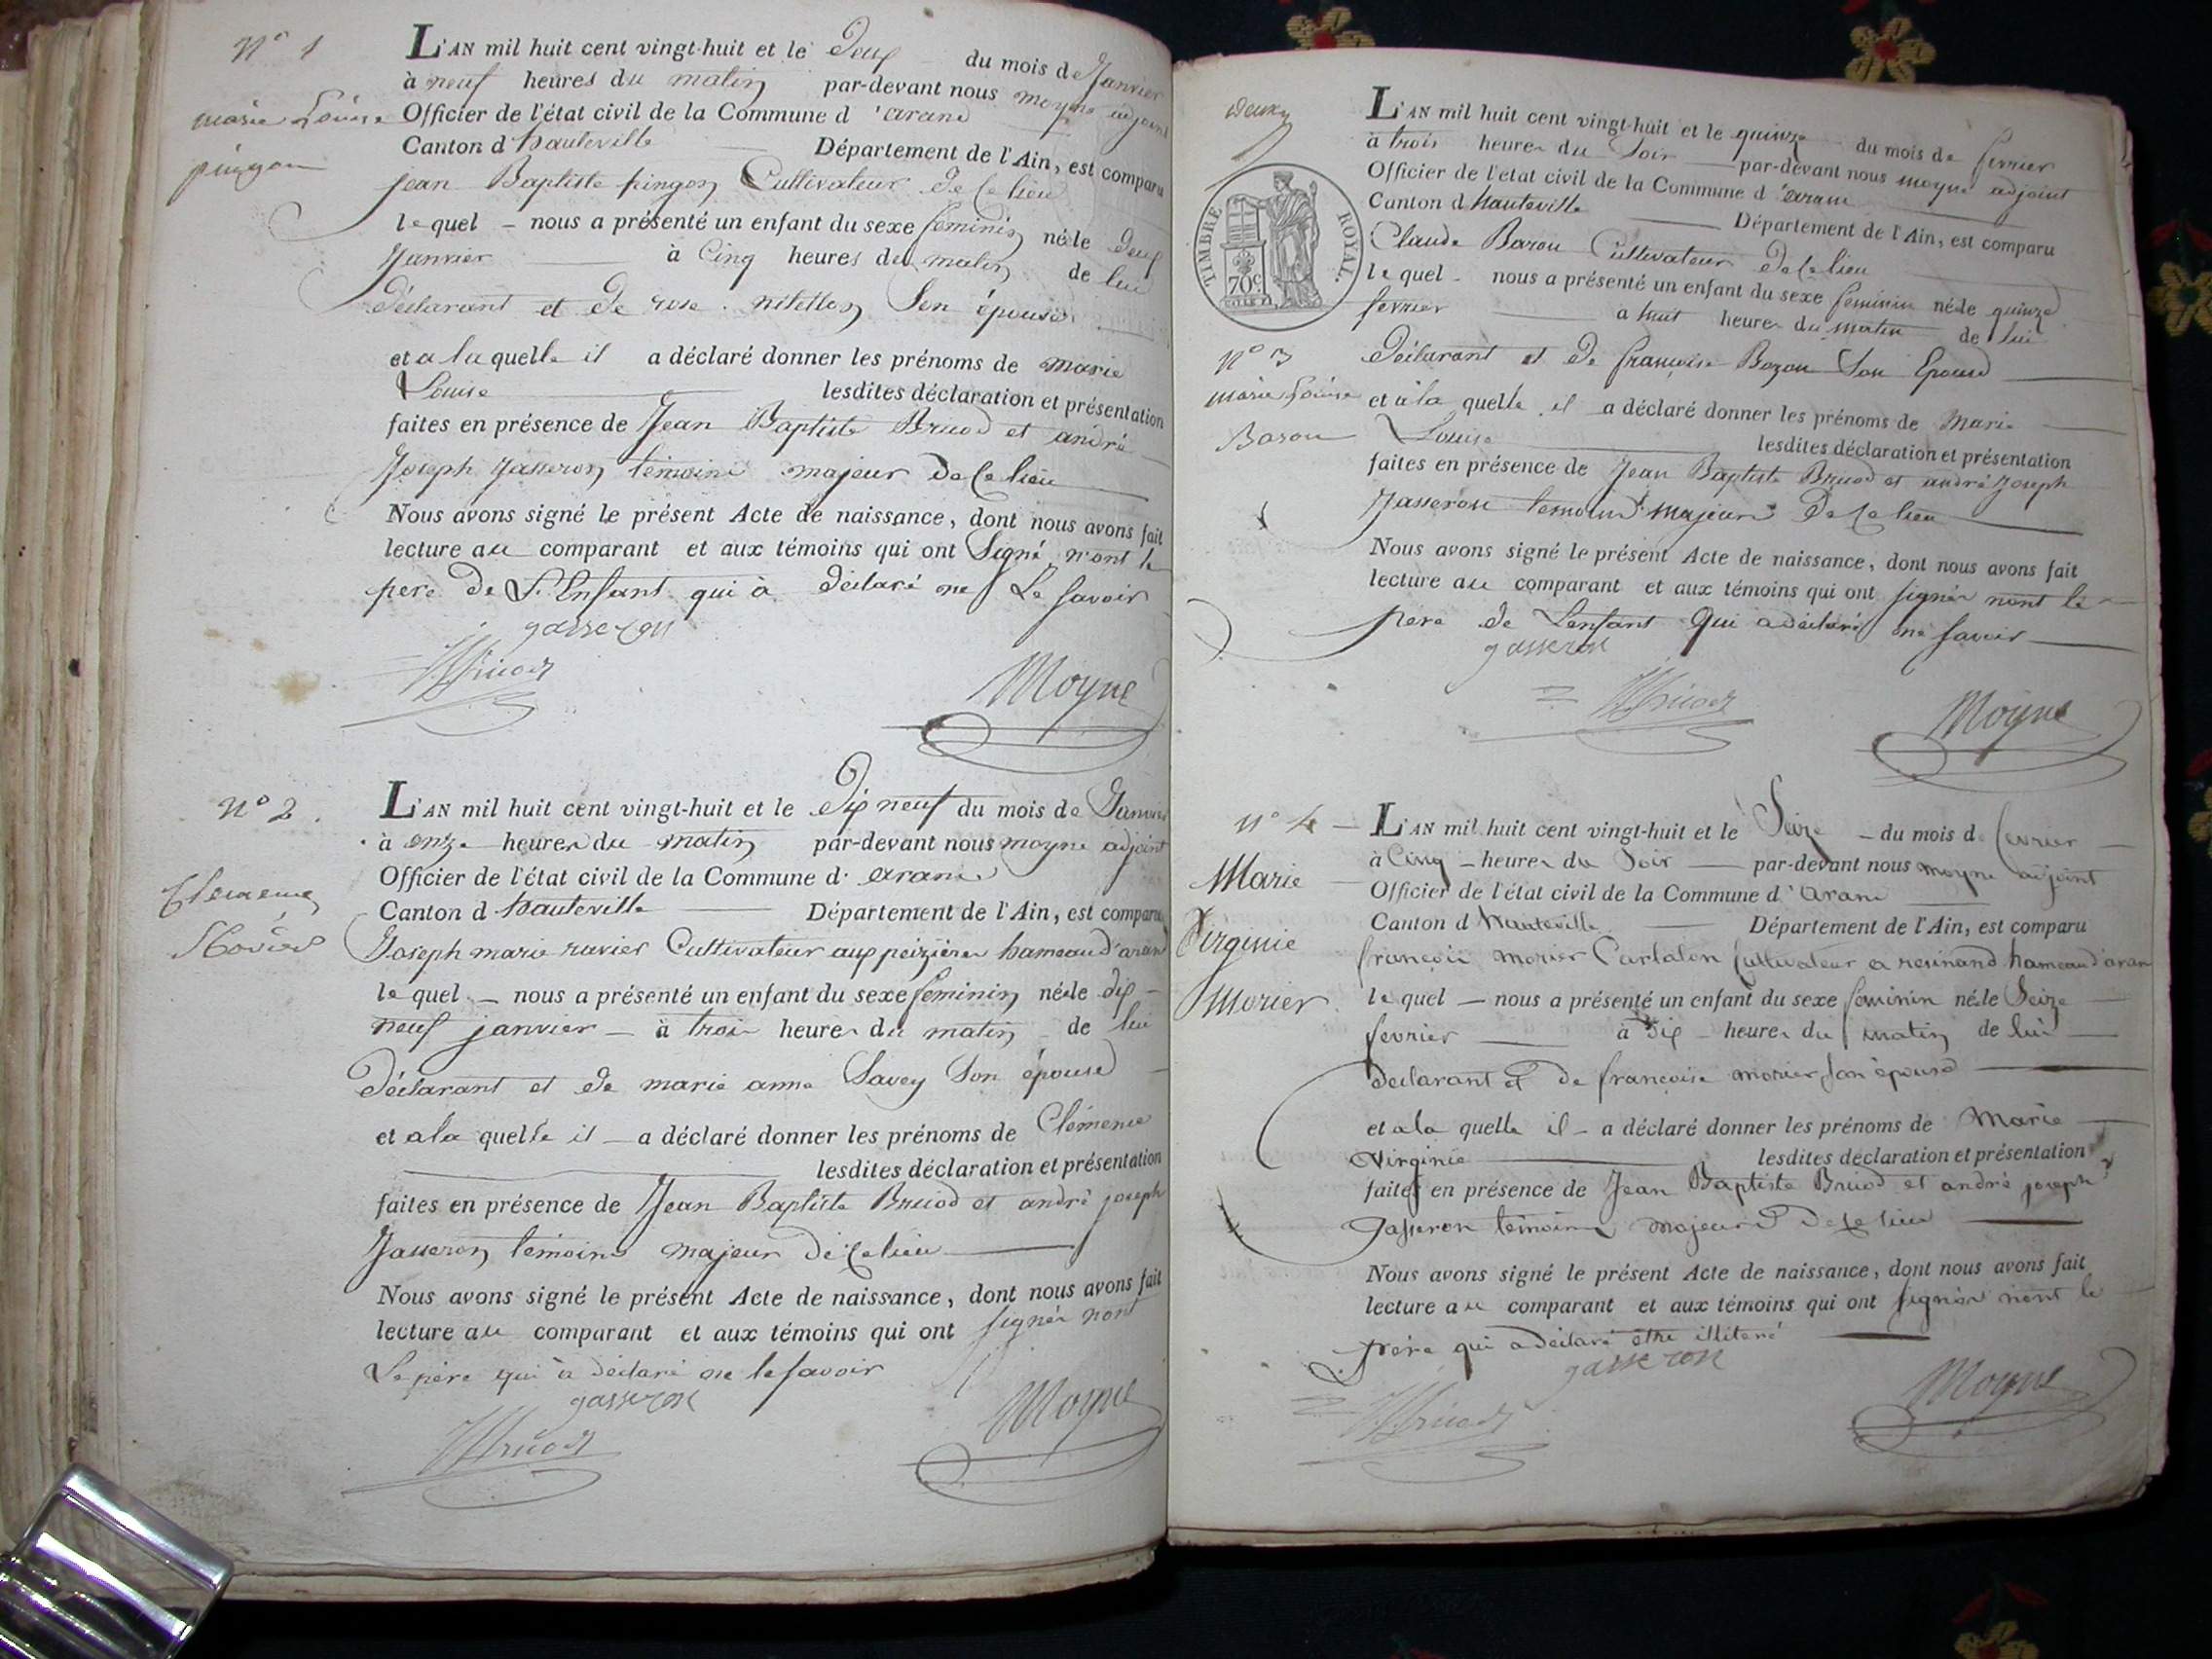 N° 1
marie Louise
pingon
L'AN mil huit cent vingt-huit et le Deux du mois de Janvier
à neuf heures du matin par-devant nous moyne adjoint
Officier de l'état civil de la Commune d'arand
Canton d hauteville Département de l'Ain, est comparu
jean Baptiste pingon Cultivateur de Ce lieu
lequel nous a présenté un enfant du sexe feminin né le Deux
Janvier à Cinq heures du matin de lui
déclarant et de rose Son épouse
et a laquelle il a déclaré donner les prénoms de marie
Louise lesdites déclaration et présentation
faites en présence de Jean Baptiste Bruod et andré
Joseph Jasseron témoins majeur de Ce lieu
Nous avons signé le présent Acte de naissance, dont nous avons fait
lecture au comparant et aux témoins qui ont Signé n'ont le
pere de L'Enfant qui à déclaré ne Le savoir
gasseron
Bruod
Moyne
N° 2.
Clemence
Ravier
L'AN mil huit cent vingt-huit et le Dix neuf du mois de Janvier
à onze heures du matin par-devant nous moyne adjoint
Officier de l'état civil de la Commune d' arand
Canton d hauteville Département de l'Ain, est comparu
Joseph marie ravier Cultivateur aux peizières hameau d'arand
lequel nous a présenté un enfant du sexe feminin né le dix
neuf janvier à trois heures du matin de lui
déclarant et de marie anne Savey Son épouse
et a la quelle il a déclaré donner les prénoms de Clémence
lesdites déclaration et présentation
faites en présence de Jean Baptiste Bruod et andré joseph
Jasseron témoins majeur de Ce lieu
Nous avons signé le présent Acte de naissance, dont nous avons fait
lecture au comparant et aux témoins qui ont signés nont
Le père qui à déclaré ne le savoir
gasseron
Bruod
Moyne
deux
TIMBRE ROYAL.
70c
N° 3
marie Louise
Baron
L'AN mil huit cent vingt-huit et le quinze du mois de fevrier
à trois heures du Soir par-devant nous moyne adjoint
Officier de l'état civil de la Commune d'arand
Canton d hauteville Département de l'Ain, est comparu
Claude Baron Cultivateur de Ce lieu
lequel nous a présenté un enfant du sexe feminin né le quinze
fevrier a huit heures du matin de lui
déclarant et de françoise Bozon Son Epouse
et à la quelle il a déclaré donner les prénoms de Marie
Louise lesdites déclaration et présentation
faites en présence de Jean Baptiste Bruod et andré Joseph
Jasseron temoins majeurs de Ce lieu
Nous avons signé le présent Acte de naissance, dont nous avons fait
lecture au comparant et aux témoins qui ont signés nont le
père de L'enfant qui a déclaré ne savoir
gasseron
Bruod
Moyne
N° 4
Marie
Virginie
Morier
L'AN mil huit cent vingt-huit et le Seize du mois de fevrier
à Cinq heures du Soir par-devant nous moyne adjoint
Officier de l'état civil de la Commune d'arand
Canton d hauteville Département de l'Ain, est comparu
françois morier Cultivateur a resinand hameau d'arand
lequel nous a présenté un enfant du sexe feminin né le Seize
fevrier à dix heures du matin de lui
déclarant et de françoise morier son épouse
et a la quelle il a déclaré donner les prénoms de Marie
Virginie lesdites déclaration et présentation
faites en présence de Jean Baptiste Bruod et andré joseph
Jasseron témoins majeurs de Ce lieu
Nous avons signé le présent Acte de naissance, dont nous avons fait
lecture au comparant et aux témoins qui ont signés nont le
père qui a déclaré être illiteré
gasseron
Bruod
Moyne